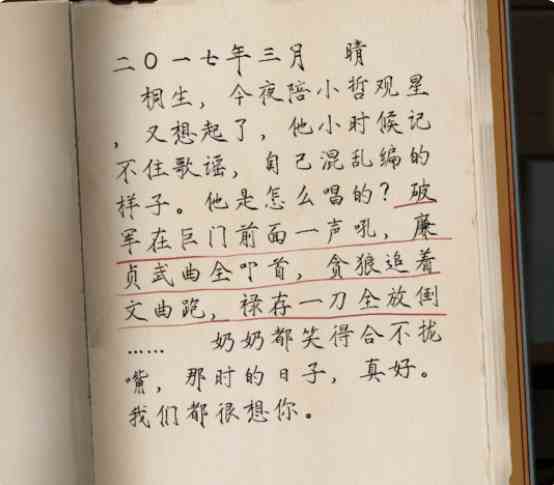 二〇一七年三月 晴
桐生，今夜陪小哲观星
，又想起了，他小时候记
不住歌谣，自己混乱编的
样子。他是怎么唱的？破
军在巨门前面一声吼，廉
贞武曲全叩首，贪狼追着
文曲跑，禄存一刀全放倒
…… 奶奶都笑得合不拢
嘴，那时的日子，真好。
我们都很想你。